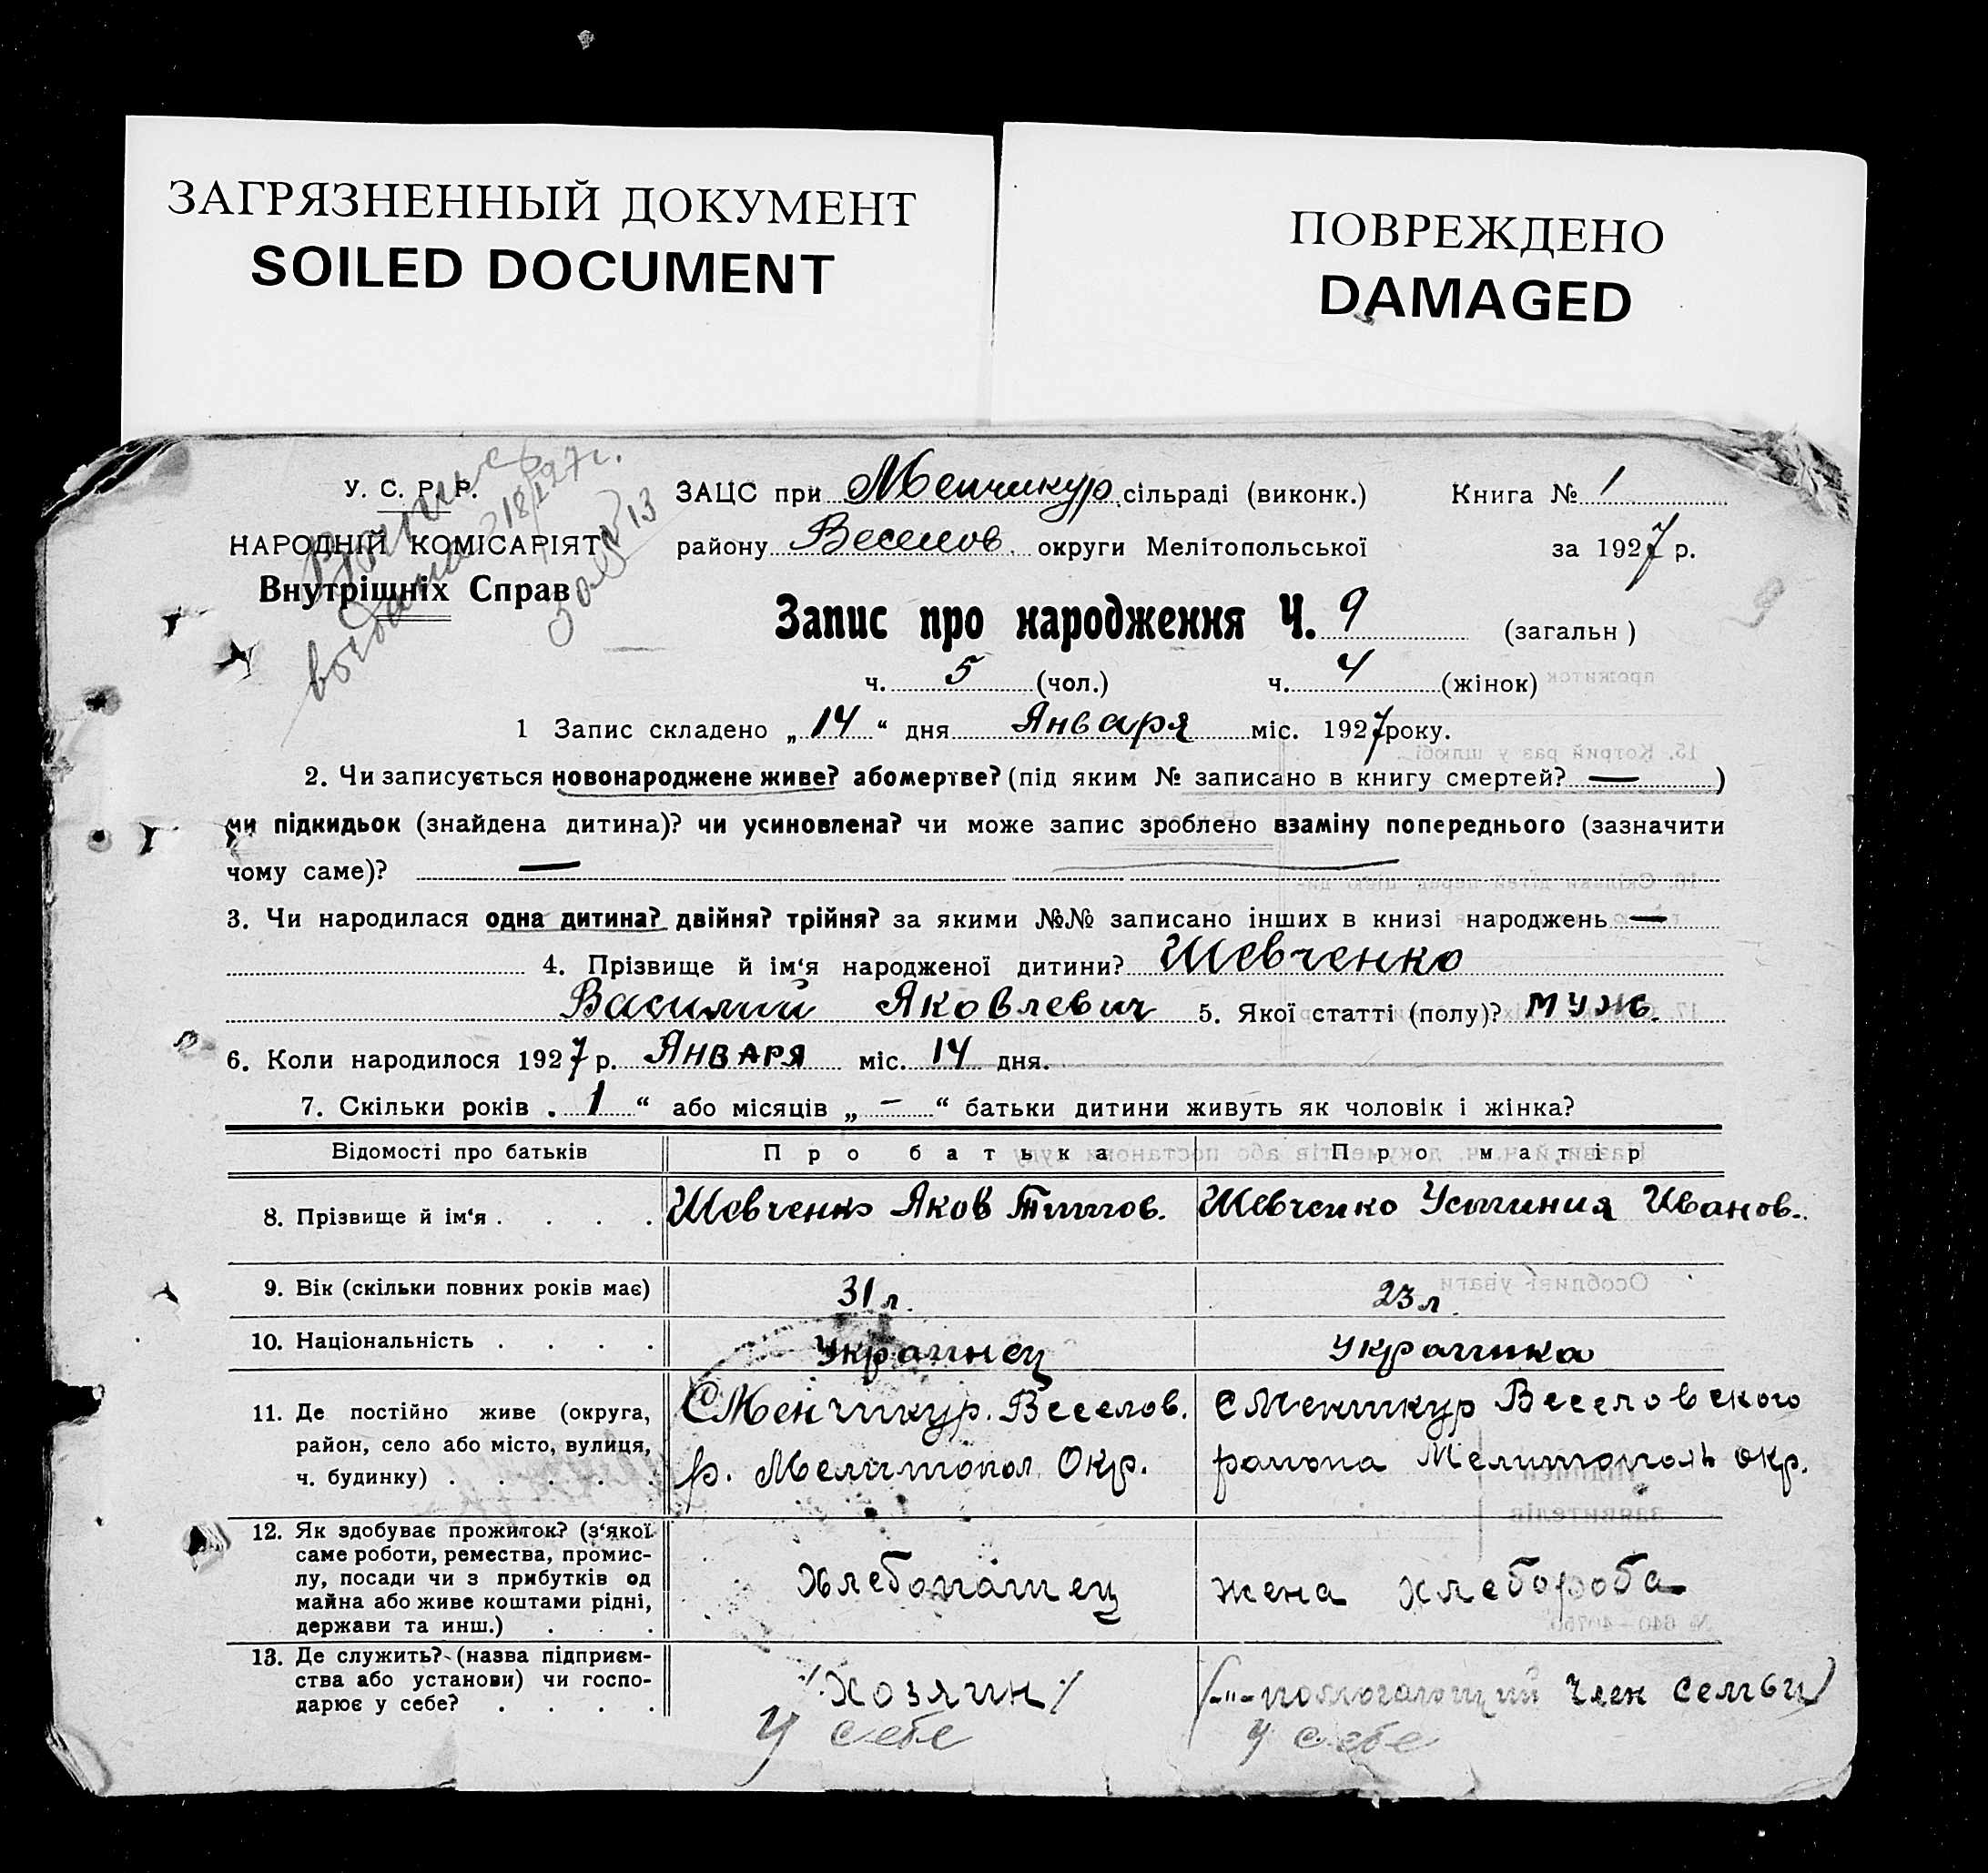 ЗАГРЯЗНЕННЫЙ ДОКУМЕНТ
SOILED DOCUMENT
ПОВРЕЖДЕНО
DAMAGED
У. С. Р. Р.
НАРОДНІЙ КОМІСАРІЯТ
Внутрішніх Справ
18/I 27 г.
13
ЗАЦС при Менчикур сільраді (виконк.) Книга № 1
району Веселов. округи Мелітопольської за 1927 р.
Запис про народження Ч. 9 (загальн)
9
ч. 5 (чол.) ч. 4 (жінок)
1 Запис складено „14“ дня Января міс. 1927 року.
2. Чи записується новонароджене живе? або мертве? (під яким № записано в книгу смертей? — )
чи підкидьок (знайдена дитина)? чи усиновлена? чи може запис зроблено взаміну попереднього (зазначити
чому саме)? —
3. Чи народилася одна дитина? двійня? трійня? за якими №№ записано інших в книзі народжень —
4. Прізвище й ім‘я народженої дитини? Шевченко
Василий Яковлевич 5. Якої статті (полу)? муж.
6. Коли народилося 1927 р. Января міс. 14 дня.
7. Скільки років „ 1 “ або місяців „ — “ батьки дитини живуть як чоловік і жінка?
Відомості про батьків Про батька Про матір
8. Прізвище й ім‘я . . . . Шевченко Яков Титов. Шевченко Устиния Иванов.
9. Вік (скільки повних років має) 31 л. 23 л.
10. Національність . . . . Украинец Украинка
11. Де постійно живе (округа, С Менчикур. Веселов. С Менчикур Веселовского
район, село або місто, вулиця,
ч. будинку) . . . . . р. Мелитопол. Окр. района Мелитополь окр.
12. Як здобуває прожиток? (з‘якої
саме роботи, ремества, промис-
лу, посади чи з прибутків од хлебопашец жена хлебороба
майна або живе коштами рідні,
держави та инш.) . . .
13. Де служить? (назва підприєм-
ства або установи) чи госпо- /Хозяин/ (-"- помогающий член семьи)
дарює у себе? . . . .
у себе у себе